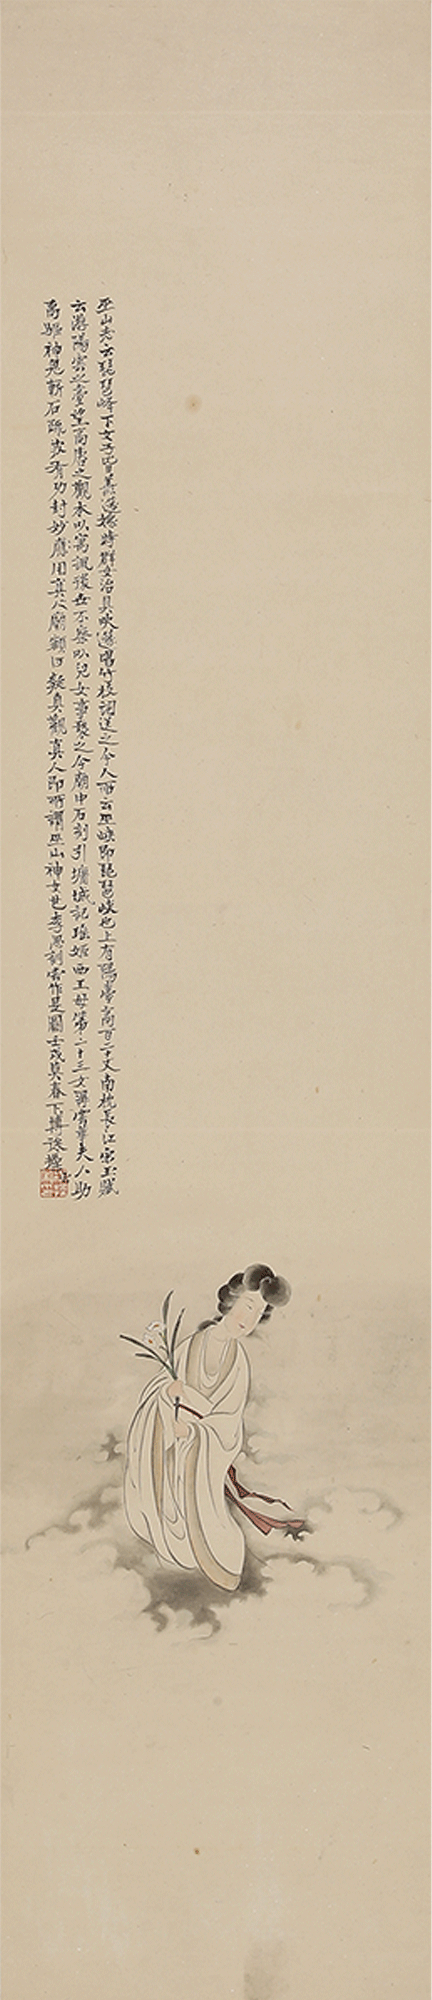 巫山志云琵琶峰下女子皆善吹笛嫁時群女治具吹笛唱竹枝詞送之今人所云巫峽即琵琶峽也上有陽臺高百二十丈南枕長江宋玉賦
云游陽雲之臺望高唐之觀本以寓諷後世不察以兒女事褻之今廟中石刻引墉城記瑤姬西王母第二十三女稱雲華夫人助
禹驅神鬼斬石疏波有功封妙應用真人廟額曰凝真觀真人即所謂巫山神女也李思訓嘗作是圖壬戌莫春下